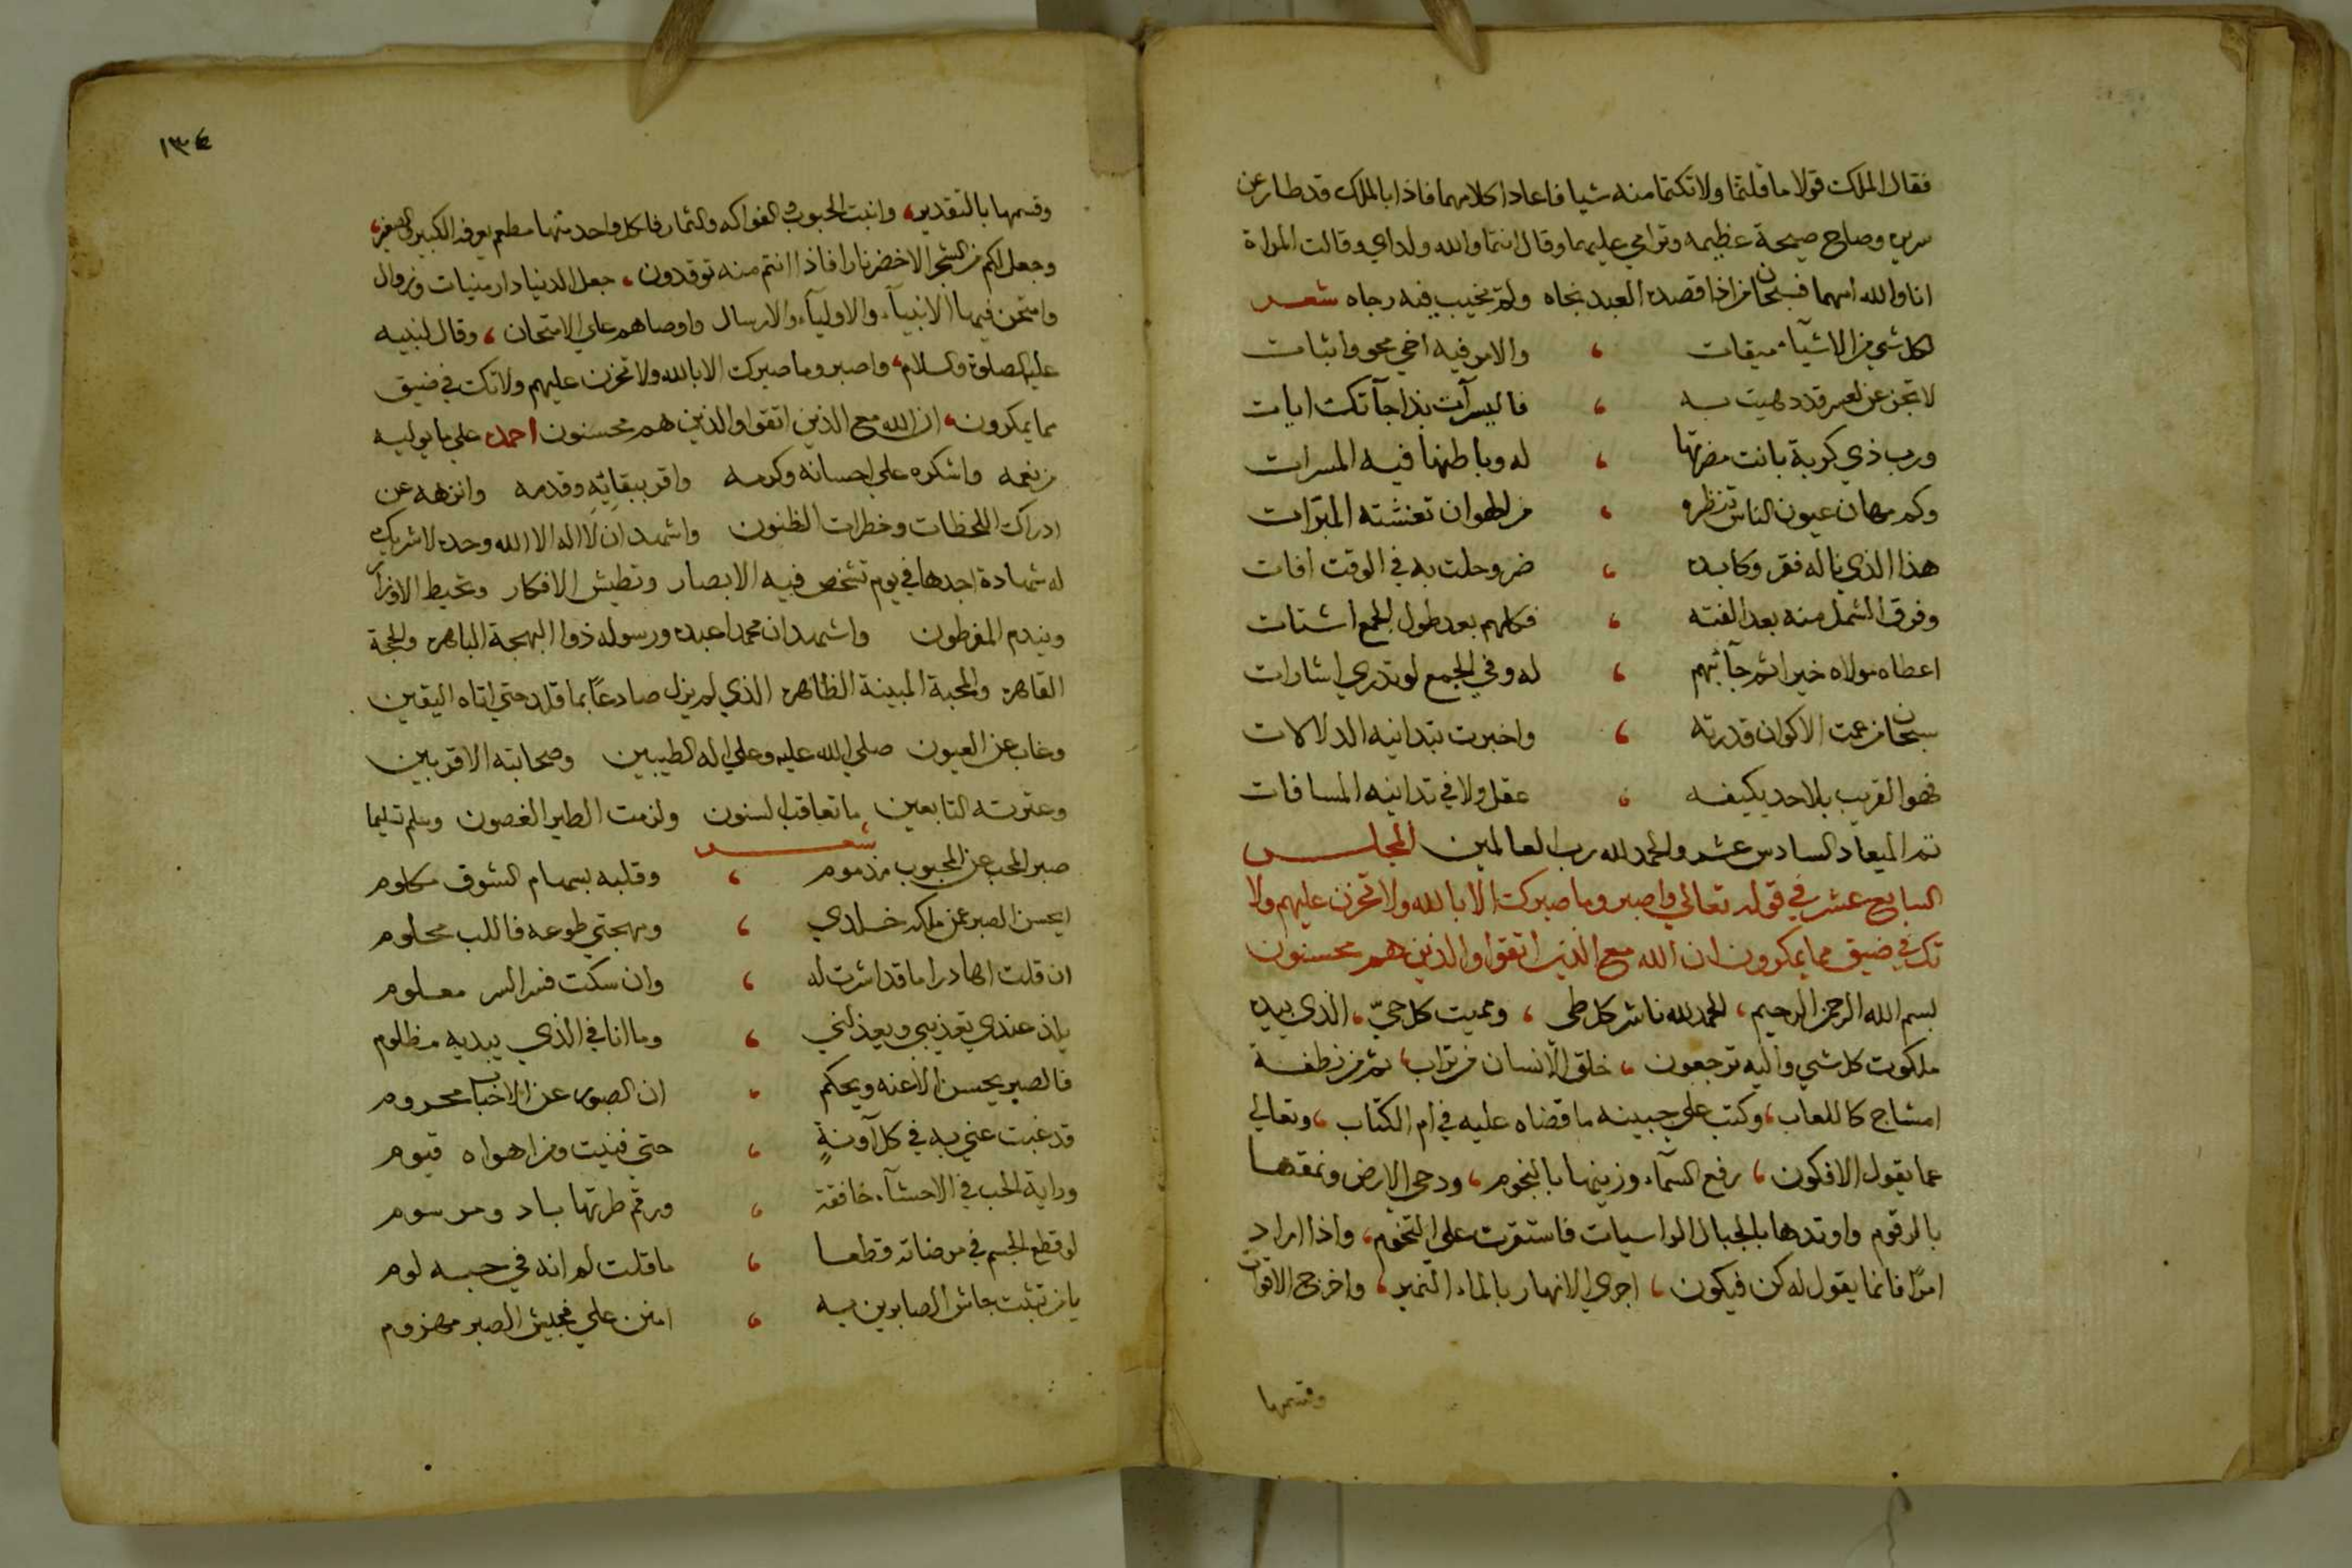 فقال الملك قولا ما قلتما ولا تكتما منه شيا فاعادا كلامهما فاذا بالملك قد طار عن
سريره وصاح صيحة عظيمه وترامي عليهما وقال انتما والله ولداي وقالت المراة
انا والله امهما فسبحان من اذا قصده العبد نجاه ولم يخيب فيه رجاه شعر
لكل شي من الاشيآء ميقات ، والامر فيه اخي محو واثبات
لا تجزعن لعسر قد دهيت به ، فاليسر آت بذا جآتك ايات
ورب ذي كربة بانت مضرتها ، له وباطنها فيه المسرات
وكم مهان عيون الناس تنظره ، من الهوان تغشته المبرّات
هذا الذي ناله فقر وكابده ، ضر وحلت به في الوقت افات
وفرق الشمل منه بعد الفته ، فكلهم بعد طول الجمع اشتات
اعطاه مولاه خيرا ثم جآء بهم ، له وفي الجمع لو تدري اشارات
سبحان من عمت الاكوان قدرته ، واخبرت بتدانيه الدلالات
فهو القريب بلا حد يكيفه ، عقل ولا في تدانيه المسافات
تم الميعاد السادس عشر والحمد لله رب العالمين المجلس
السابع عشر في قوله تعالي واصبر وما صبرك الا بالله ولا تحزن عليهم ولا
تك في ضيق مما يمكرون ان الله مع الذين اتقوا والذين هم محسنون
بسم الله الرحمن الرحيم ، الحمد لله ناشر كل طي ، ومميت كل حيّ ، الذي بيده
ملكوت كل شي واليه ترجعون ، خلق الانسان من تراب ، ثم من نطفة
امشاج كاللعاب ، وكتب علي جبينه ما قضاه عليه في ام الكتاب ، وتعالي
عما يقول الافكون ، رفع السمآء وزينها بالنجوم ، ودحي الارض ونمقها
بالرقوم واوتدها بالجبال الراسيات فاستقرت علي التخوم ، واذا اراد
امرًا فانما يقول له كن فيكون ، اجري الانهار بالماء النمير ، واخرج الاقوات
وقسمها
١٣٤
وقسمها بالتقدير ، وانبت الحبوب والفواكه والثمار فلكل واحد منها مطعم يعرفه الكبير والصغير ،
وجعل لكم من الشجر الاخضر نارا فاذا انتم منه توقدون ، جعل الدنيا دار منيات وزوال
وامتحن فيها الانبيآء والاوليآء والارسال واوصاهم علي الامتحان ، وقال لنبيه
عليه الصلوة والسلام ، واصبر وما صبرك الا بالله ولا تحزن عليهم ولا تك في ضيق
مما يمكرون ، ان الله مع الذين اتقوا والذين هم محسنون احمده علي ما يوليه
من نعمه واشكره علي احسانه وكرمه واقر ببقائه وقدمه وانزهه عن
ادراك اللحظات وخطرات الظنون واشهد ان لا اله الا الله وحده لا شريك
له شهادة اجدها في يوم تشخص فيه الابصار وتطيش الافكار وتحيط الاوزار
ويندم المفرطون واشهد ان محمدا عبده ورسوله ذو البهجة الباهره والحجة
القاهره والمحبة المبينة الظاهره الذي لم يزل صادعًا بما قلد حتي اتاه اليقين
وغاب عن العيون صلي الله عليه وعلي اله الطيبين وصحابته الاقربين
وعترته التابعين ما تعاقب السنون ولزمت الطير الغصون وسلم تسليما
شعر
صبر المحب عن المحبوب مذموم ، وقلبه بسهام الشوق مكلوم
ايحسن الصبر عمن ملكه خلدي ، ومهجتي طوعه فاللب محلوم
ان قلت اها درا ما قد اشرت له ، وان سكت فسر السر معلوم
يلذ عندي تعذيبي ويعذلني ، وما انا في الذي يبديه مظلوم
فالصبر يحسن الا عنه ويحكم ، ان الصبور عن الاحباب محروم
قد غبت عني به في كل آونةٍ ، حتي فنيت ومن اهواه قيوم
وراية الحب في الاحشآء خافقة ، ورقم طرتها باد ومرسوم
لو قطع الجسم في مرضاته قطعا ، ما قلت لم انه في حبه لوم
يا من تثبت جاش الصابرين به ، امنن علي فجيش الصبر مهزوم